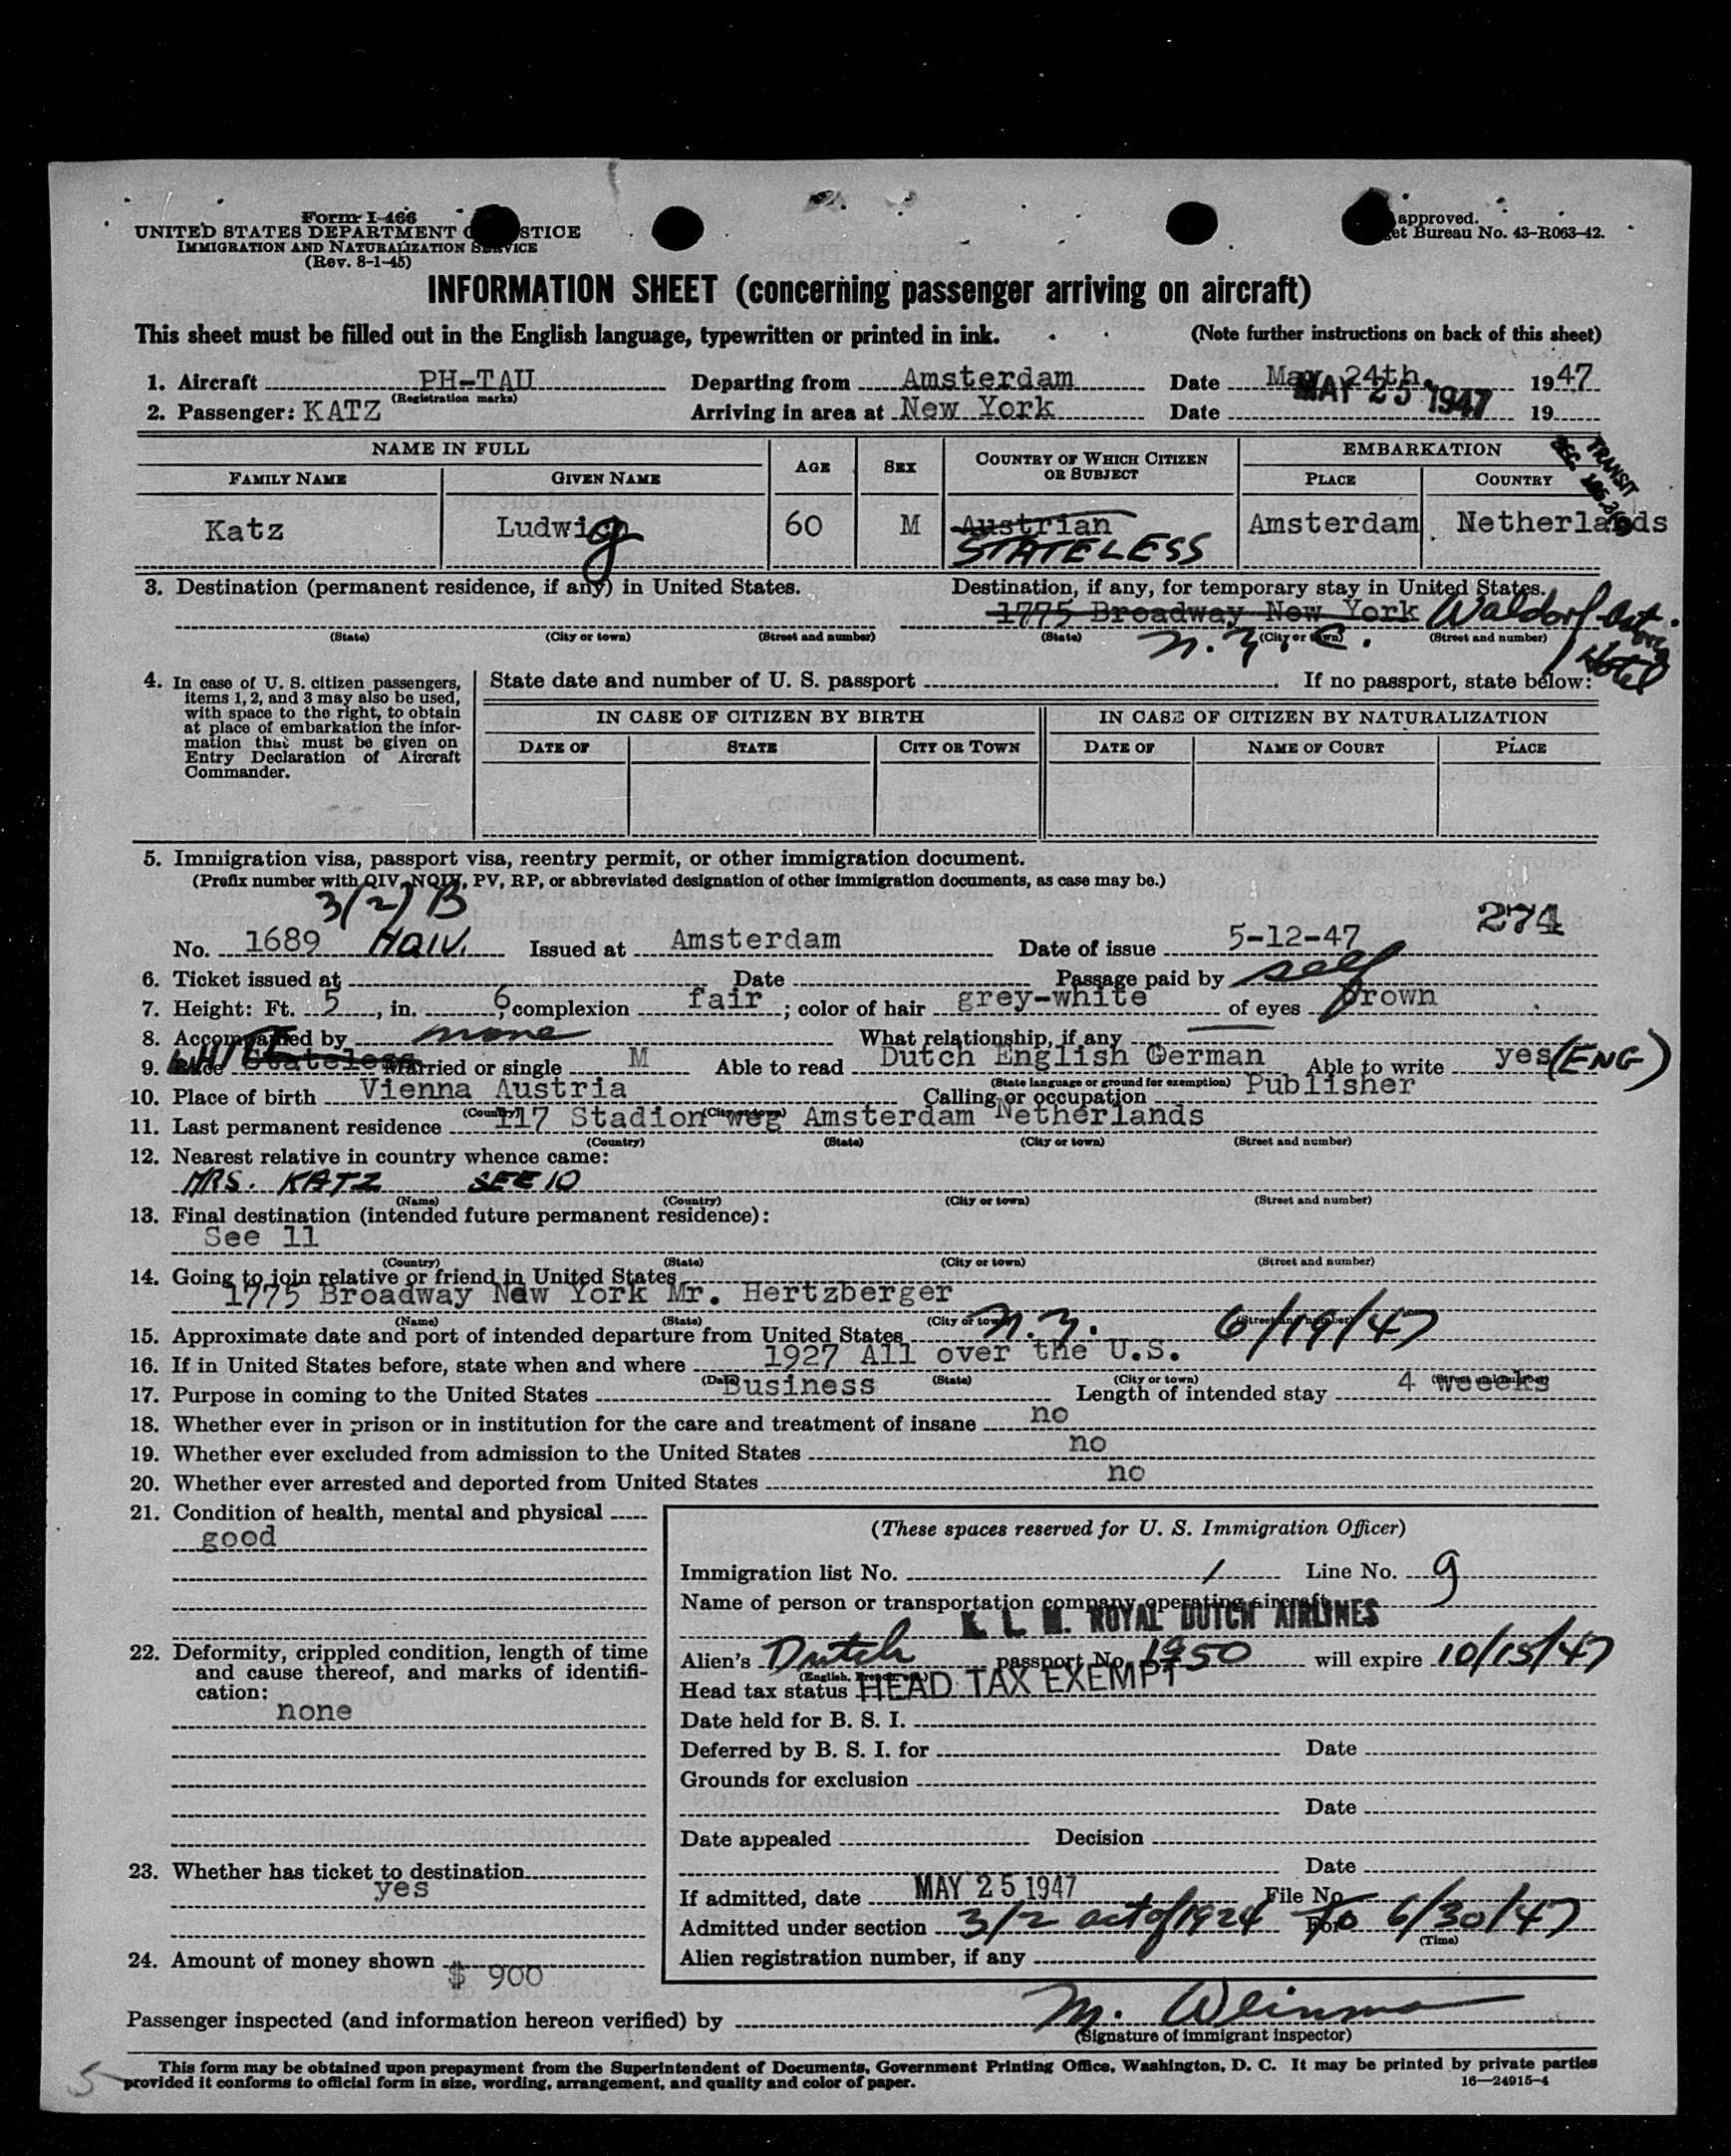 Form I-466
UNITED STATES DEPARTMENT O STICE
IMMIGRATION AND NATURALIZATION SERVICE
(Rev. 8-1-45)
approved.
et Bureau No. 43-R063-42.
INFORMATION SHEET (concerning passenger arriving on aircraft)
This sheet must be filled out in the English language, typewritten or printed in ink. (Note further instructions on back of this sheet)
1. Aircraft PH-TAU Departing from Amsterdam Date May 24th. 1947
(Registration marks) MAY 25 1947
2. Passenger: KATZ Arriving in area at New York Date 19
NAME IN FULL AGE SEX COUNTRY OF WHICH CITIZEN OR SUBJECT EMBARKATION
FAMILY NAME GIVEN NAME PLACE COUNTRY
TRANSIT
SEC.
Katz Ludwig 60 M Austrian Amsterdam Netherlands
STATELESS
3. Destination (permanent residence, if any) in United States. Destination, if any, for temporary stay in United States.
1775 Broadway New York Waldorf-Astoria Hotel
(State) (City or town) (Street and number) (State) (City or town) (Street and number)
N.Y.C.
4. In case of U. S. citizen passengers, items 1, 2, and 3 may also be used, with space to the right, to obtain at place of embarkation the information that must be given on Entry Declaration of Aircraft Commander.
State date and number of U. S. passport . If no passport, state below:
IN CASE OF CITIZEN BY BIRTH IN CASE OF CITIZEN BY NATURALIZATION
DATE OF STATE CITY OR TOWN DATE OF NAME OF COURT PLACE
5. Immigration visa, passport visa, reentry permit, or other immigration document.
(Prefix number with QIV, NQIV, PV, RP, or abbreviated designation of other immigration documents, as case may be.)
3(2) B
274
No. 1689 NQIV. Issued at Amsterdam Date of issue 5-12-47
6. Ticket issued at Date Passage paid by self
7. Height: Ft. 5, in. 6; complexion fair; color of hair grey-white of eyes brown
8. Accompanied by none What relationship, if any
9. Race WHITE Stateless Married or single M Able to read Dutch English German Able to write yes (ENG)
(State language or ground for exemption)
10. Place of birth Vienna Austria Calling or occupation Publisher
(Country) (City or town)
11. Last permanent residence 117 Stadion weg Amsterdam Netherlands
(Country) (State) (City or town) (Street and number)
12. Nearest relative in country whence came:
MRS. KATZ SEE 10
(Name) (Country) (City or town) (Street and number)
13. Final destination (intended future permanent residence):
See 11
(Country) (State) (City or town) (Street and number)
14. Going to join relative or friend in United States
1775 Broadway New York Mr. Hertzberger
(Name) (State) (City or town) (Street and number)
15. Approximate date and port of intended departure from United States N.Y. 6/19/47
16. If in United States before, state when and where 1927 All over the U.S.
(Date) (State) (City or town) (Street and number)
17. Purpose in coming to the United States Business Length of intended stay 4 weeeks
18. Whether ever in prison or in institution for the care and treatment of insane no
19. Whether ever excluded from admission to the United States no
20. Whether ever arrested and deported from United States no
21. Condition of health, mental and physical
good
22. Deformity, crippled condition, length of time and cause thereof, and marks of identification:
none
23. Whether has ticket to destination
yes
24. Amount of money shown $ 900
(These spaces reserved for U. S. Immigration Officer)
Immigration list No. 1 Line No. 9
Name of person or transportation company operating aircraft
K. L. M. ROYAL DUTCH AIRLINES
Alien's Dutch passport No. 1950 will expire 10/15/47
(English, French, etc.)
Head tax status HEAD TAX EXEMPT
Date held for B. S. I.
Deferred by B. S. I. for Date
Grounds for exclusion
Date
Date appealed Decision
Date
If admitted, date MAY 25 1947 File No.
Admitted under section 3/2 act of 1924 For to 6/30/47
(Time)
Alien registration number, if any
Passenger inspected (and information hereon verified) by M. Weinman
(Signature of immigrant inspector)
This form may be obtained upon prepayment from the Superintendent of Documents, Government Printing Office, Washington, D. C. It may be printed by private parties
provided it conforms to official form in size, wording, arrangement, and quality and color of paper. 16—24915-4
5